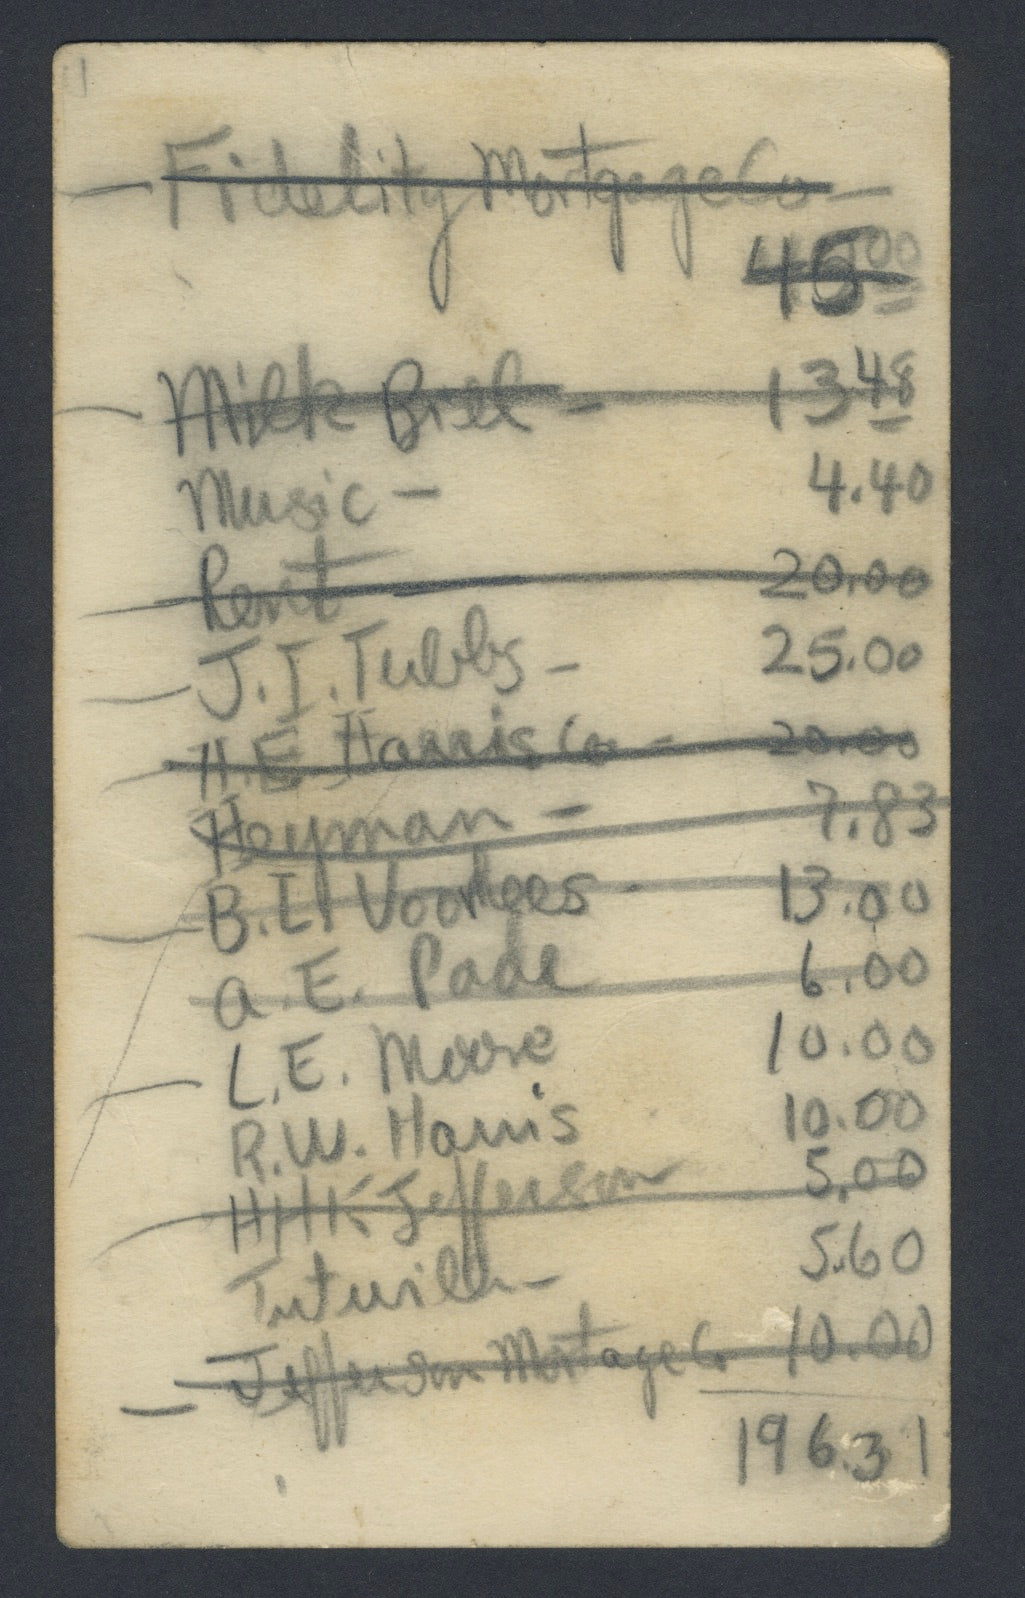 Fidelity Mortgage Co —
45.00
Milk Bill — 13.48
Music — 4.40
Rent 20.00
J.I. Tubbs — 25.00
H.E. Harris Co — 20.00
Heyman — 7.83
B.L. Voorhees - 13.00
A.E. Pade 6.00
L.E. Moore 10.00
R.W. Harris 10.00
HHK Jefferson 5.00
Tutwiler — 5.60
Jefferson Mortage Co 10.00
196.31